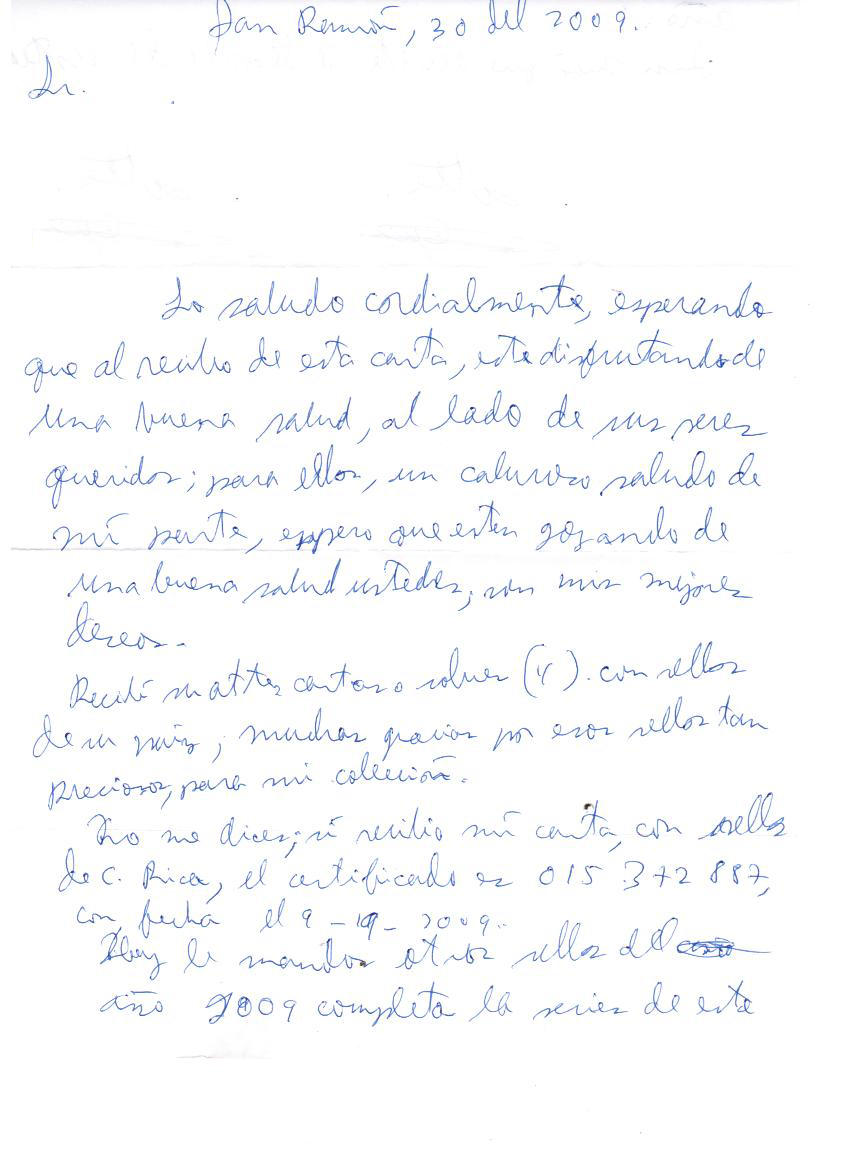 San Ramón, 30 del 2009.
Sr.
Lo saludo cordialmente, esperando
que al recibo de esta carta, este disfrutando de
una buena salud, al lado de sus seres
queridos; para ellos, un caluroso saludo de
mi parte, espero que esten gozando de
una buena salud ustedes, son mis mejores
deseos.-
Recibí cartas o sobres (4). con sellos
de su país, muchas gracias por esos sellos tan
preciosos, para mi colección.
No me dices, si recibio mi carta, con sellos
de C. Rica, el certificado es 015 372 887,
con fecha el 9 - - 2009.
Hoy le mando otros sellos del
año 2009 completa la series de este